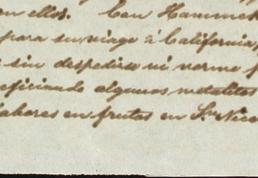 con ellos. Con Hammek
para su viage á California,
sin despedirse ni verme
eficiando algunos metalitos
labores en frutas en Sn Nic